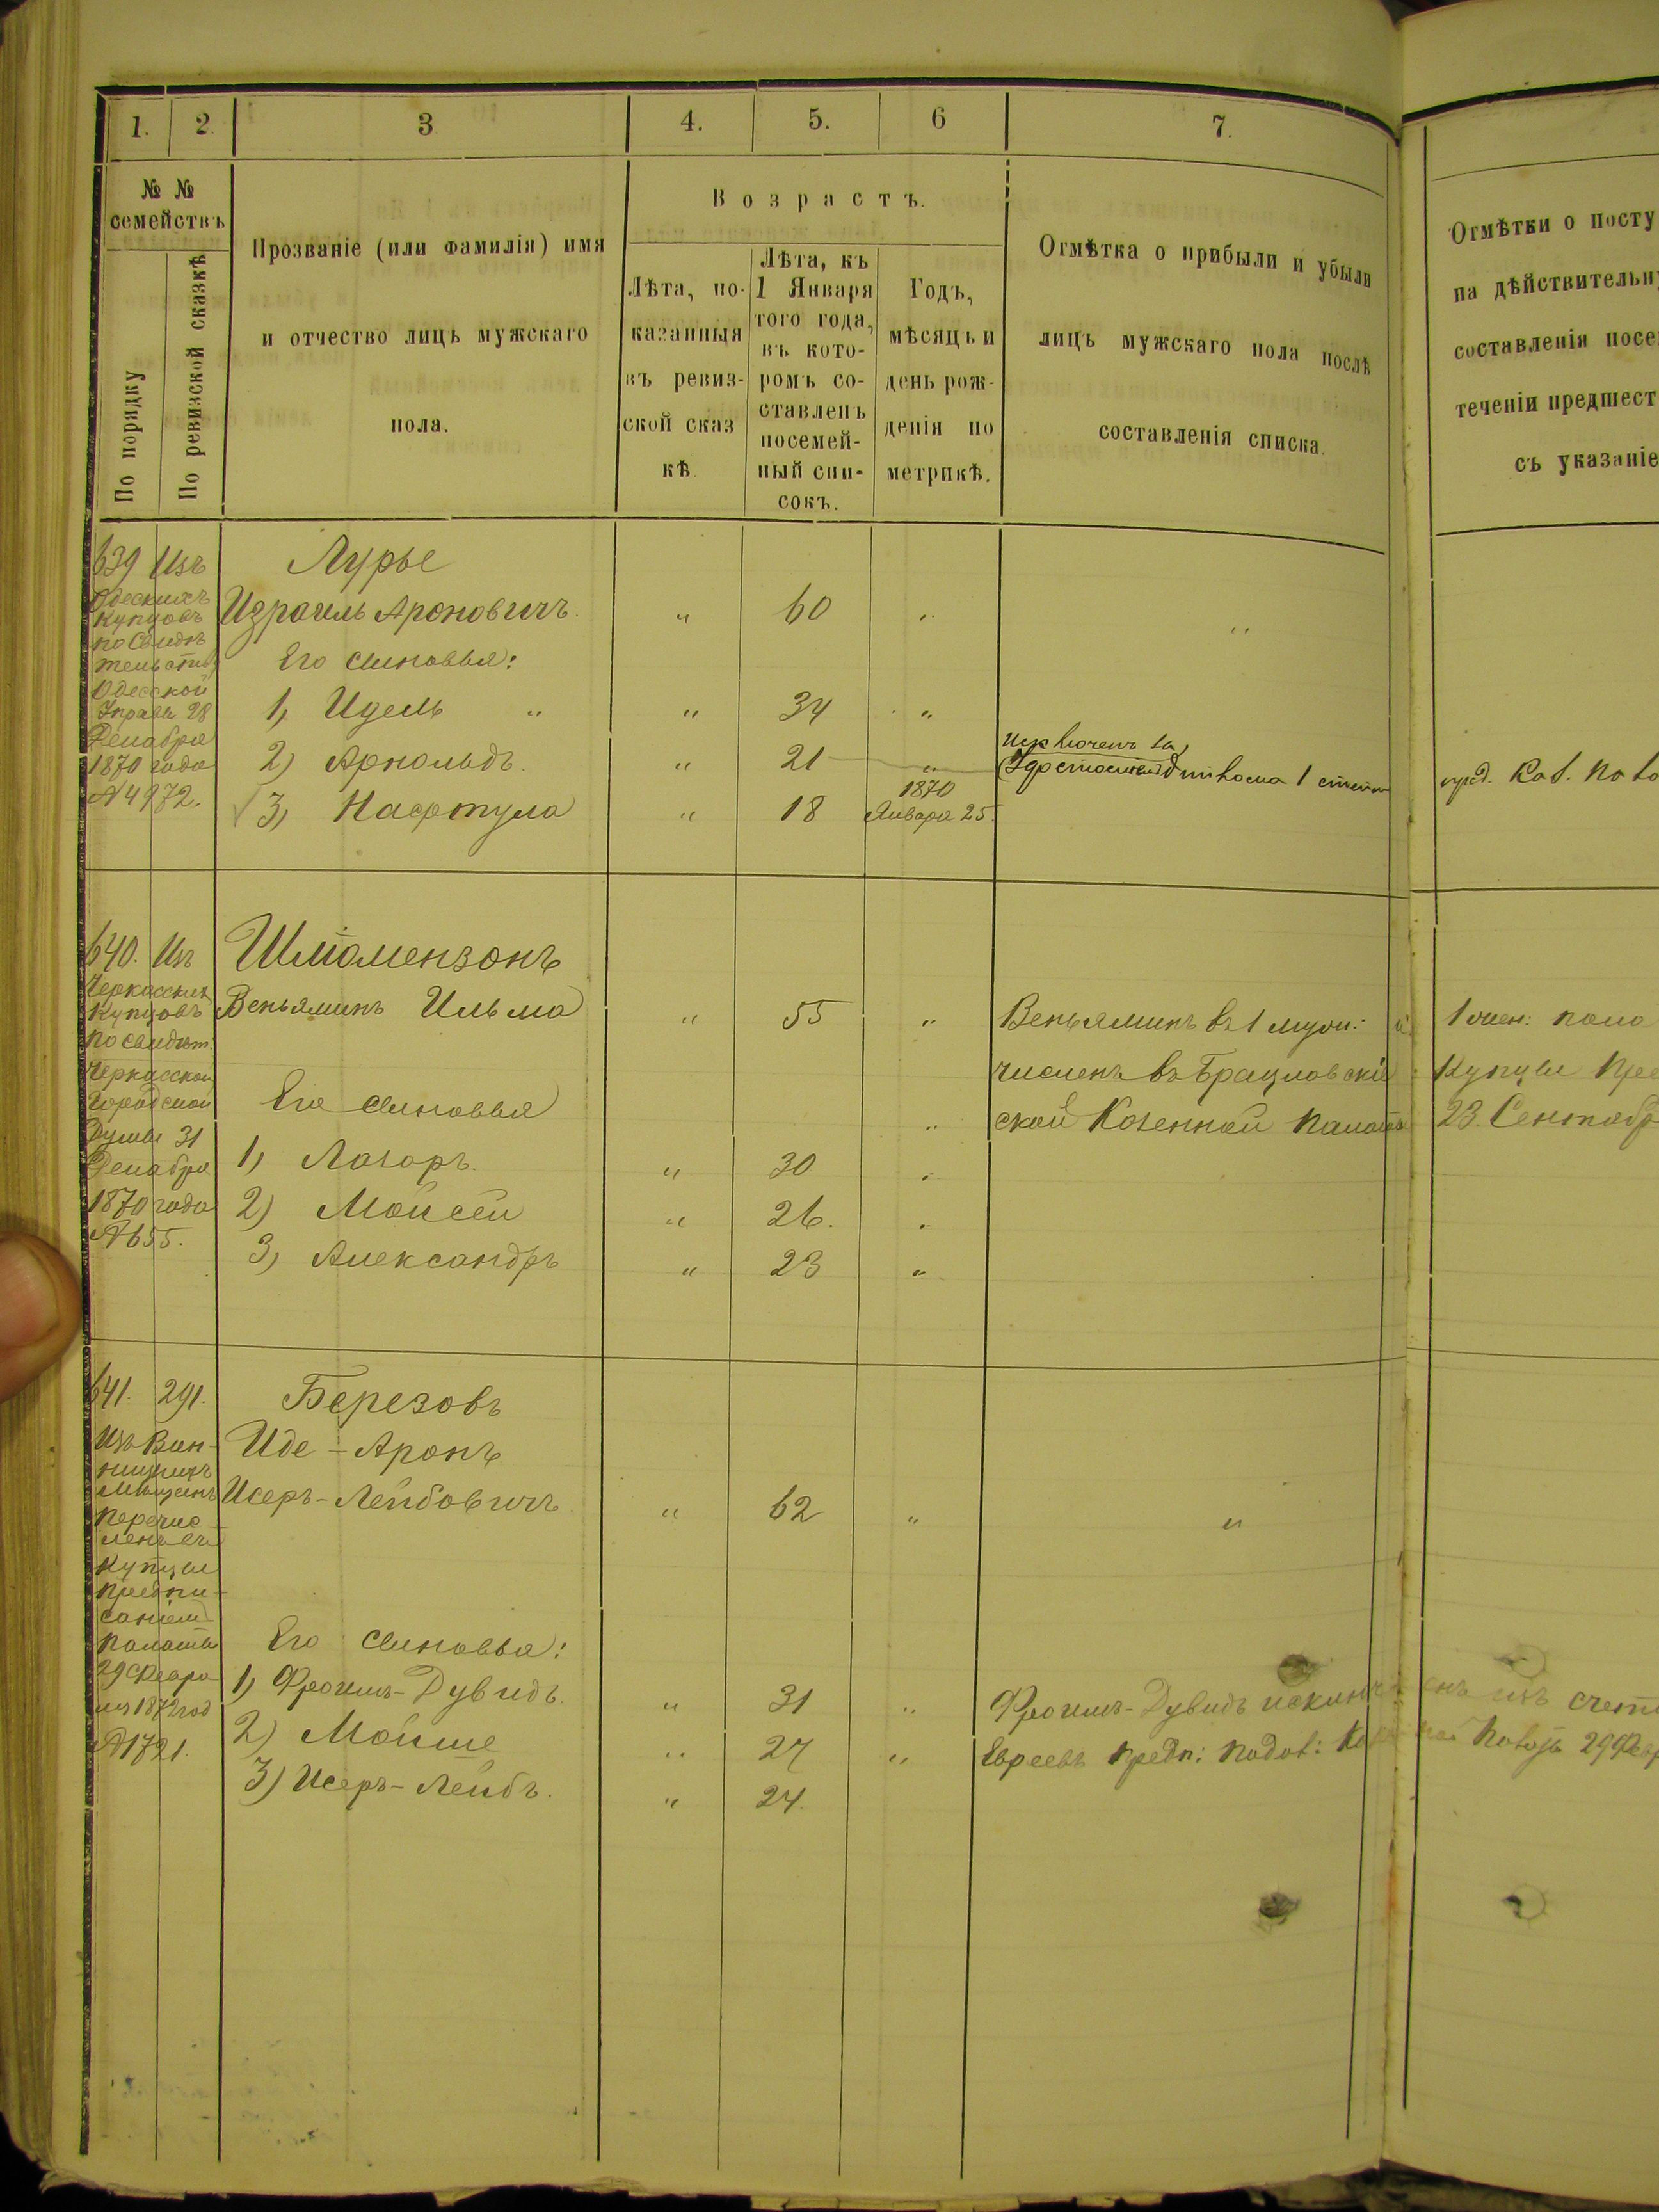 1. 2. 3 4. 5. 6 7.
№ №
семействъ
По порядку
По ревизской сказкѣ
Прозваніе (или фамилія) имя
и отчество лицъ мужскаго
пола.
Возрастъ.
Лѣта, по-
казанныя
въ ревиз-
ской сказ
кѣ.
Лѣта, къ
1 Января
того года,
въ кото-
ромъ со-
ставленъ
посемей-
ный спи-
сокъ.
Годъ,
мѣсяцъ и
день рож-
денія по
метрикѣ.
Отмѣтка о прибыли и убыли
лицъ мужскаго пола послѣ
составленія списка.
Отмѣтки о посту
на дѣйствительн
составленія посе
теченіи предшест
съ указаніе
639 Изъ
Одесскихъ
Купцовъ
по Свидѣ
тельству
Одесской
Управы 28
Декабря
1870 года
№ 4972.
Лурье
Израиль Ароновичъ. " 60 " "
Его сыновья:
1, Идель " " 34 "
2) Арнольдъ. " 21 "
Исключенъ за
1 степ
3, Нафтула " 18 1870
Января 25.
640. Изъ
Черкасскихъ
Купцовъ
по свидѣт:
Черкасской
Городской
Думы 31
Декабря
1870 года
№ 655.
Шліомензонъ
Веньяминъ Ильма " 55 "
Его сыновья "
1, Лазарь. " 30 "
2) Мойсей " 26. "
3, Александръ " 23 "
Веньяминъ въ 1
численъ въ Брацловскіе
ской Казенной Палаты
Купцы
23. Сентябр
641. 291.
Изъ Вин-
ницкихъ
Мѣщанъ
перечис
ленъ въ
Купцы
предпи-
саніемъ
Палаты
29 Февра
ля 1872 год
№ 1721.
Березовъ
Иде-Аронъ
Исеръ-Лейбовичъ. " 62 " "
Его сыновья:
1, Фроимъ-Дувидъ. " 31 "
2) Мойше " 27 "
3) Исеръ-Лейбъ. " 24.
Фроимъ-Дувидъ исключенъ изъ счета
Евреевъ предп: Подол: Казенной Палаты 29 Февр